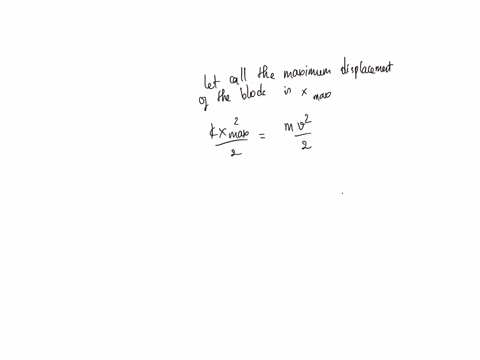 let call the maximum displacement
of the block is x max
kx²max/2 = mv²/2